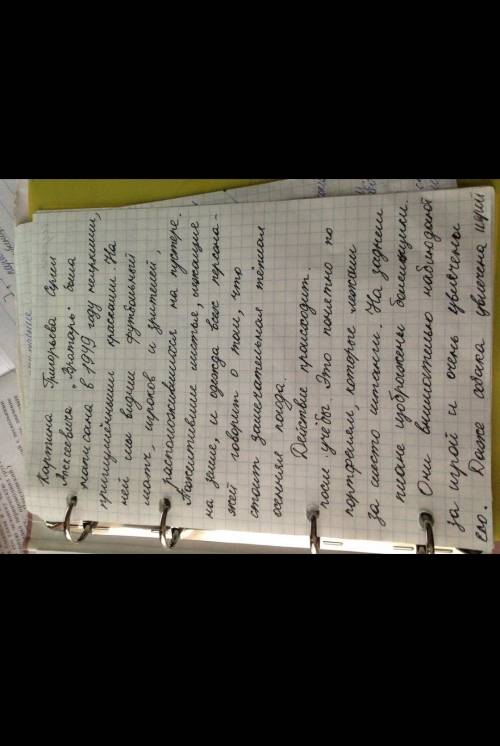 Картина Григорьева Сергея
Алексеевича "Вратарь" была
написана в 1949 году неяркими,
приглушёнными красками. На
ней мы видим футбольный
матч, игроков и зрителей,
расположившихся на пустыре.
Пожелтевшие листья, лежащие
на земле, и одежда всех персона-
жей говорит о том, что
стоит замечательная тёплая
осенняя погода.
Действие происходит
после учёбы. Это понятно по
портфелям, которые лежат
за место штанги. На заднем
плане изображены болельщики.
Они внимательно наблюдают
за игрой и очень увлечены
ею. Даже собака увлечена игрой